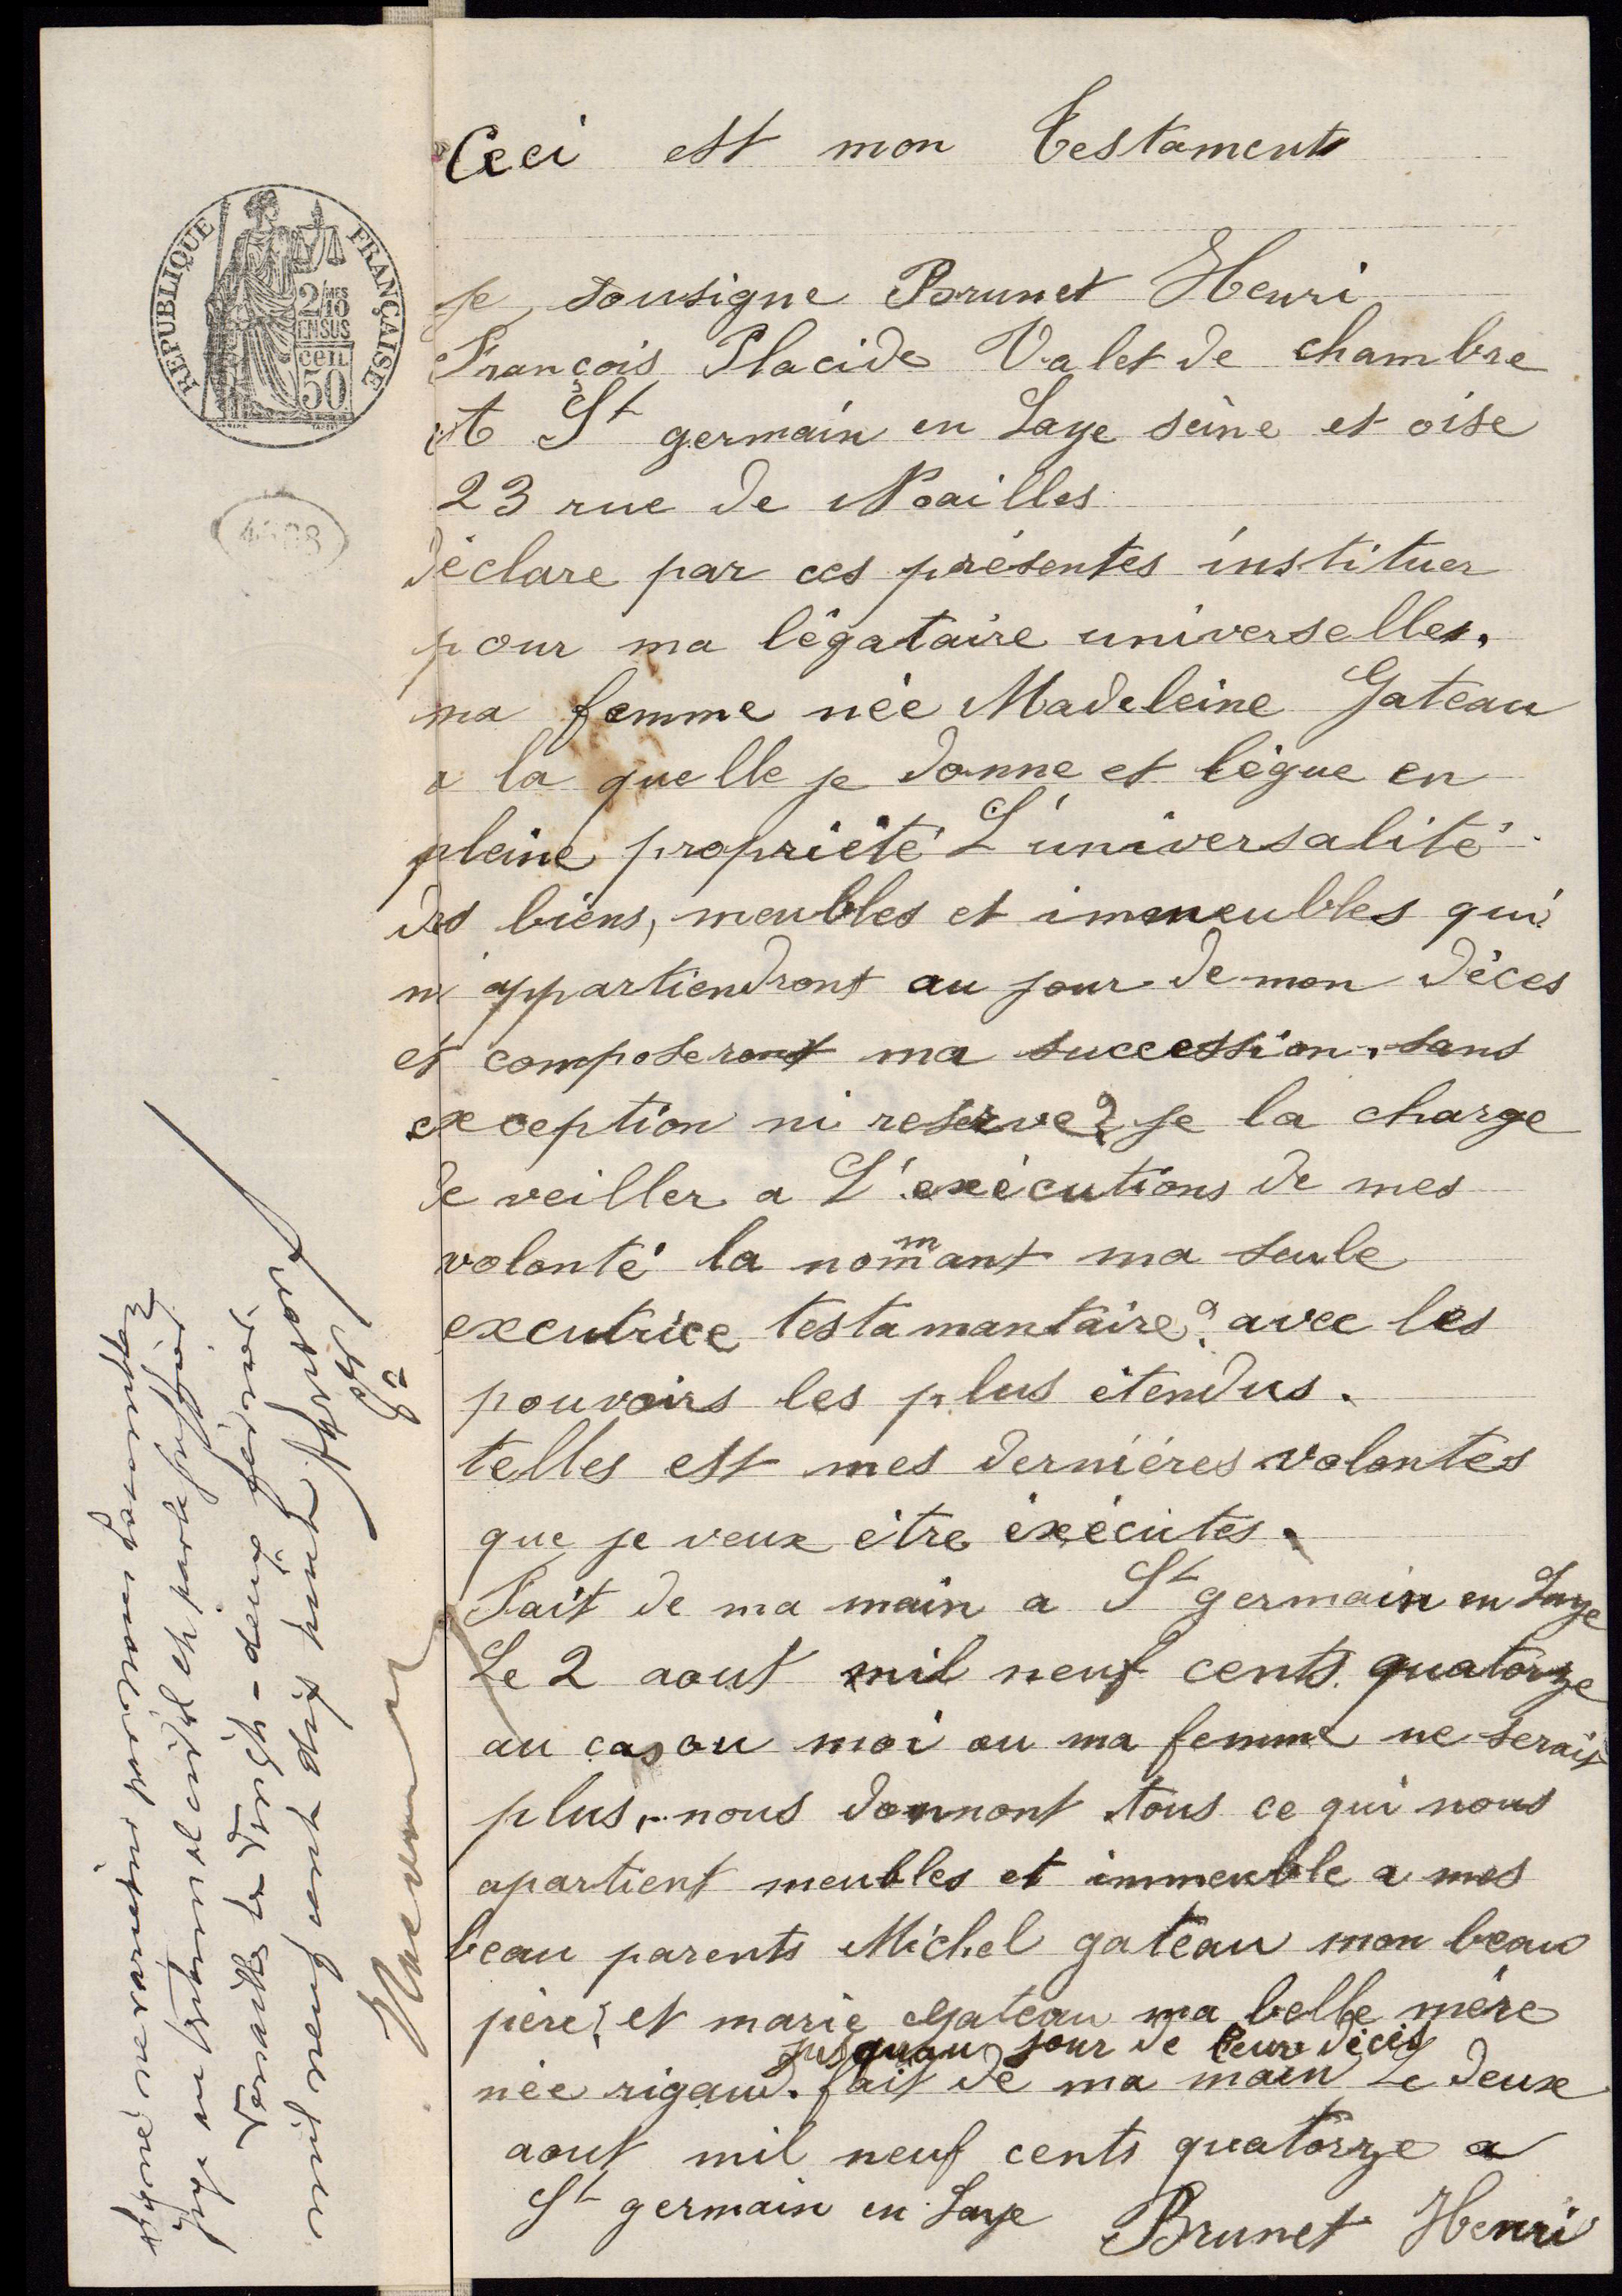 Ceci est mon Testament
je sousigne Brunet Henri
François Placide Valet de chambre
A St germain en Laye seine et oise
23 rue de Noailles
déclare par ces présentes instituer
pour ma légataire universelle.
ma femme née Madeleine Gateau
a la quelle je donne et lègue en
pleine propriété L'universalité
des biens, meubles et immeubles qui
m'appartiendront au jour de mon décès
et composeront ma succession, sans
exception ni reserve, je la charge
de veiller a L'exécutions de mes
volonté la nommant ma seule
excutrice testamantaire, avec les
pouvoirs les plus étendus.
telles est mes dernières volontés
que je veux être éxécutes.
Fait de ma main a St germain en Laye
Le 2 aout mil neuf cents quatorze
au cas ou moi ou ma femme ne serait
plus, nous donnont tous ce qui nous
apartient meubles et immeuble a mes
beau parents Michel gateau mon beau
père, et marie gateau ma belle mère
jusquau jour de leur décès
née rigaud. fait de ma main Le deux
aout mil neuf cents quatorze a
St germain en Laye Brunet Henri
RÉPUBLIQUE FRANÇAISE
2/MES
10
EN SUS
cen
50
signé ne varietur
Juge au tribunal civil
Versailles le Vingt-deux février
mil neuf cent dix huit